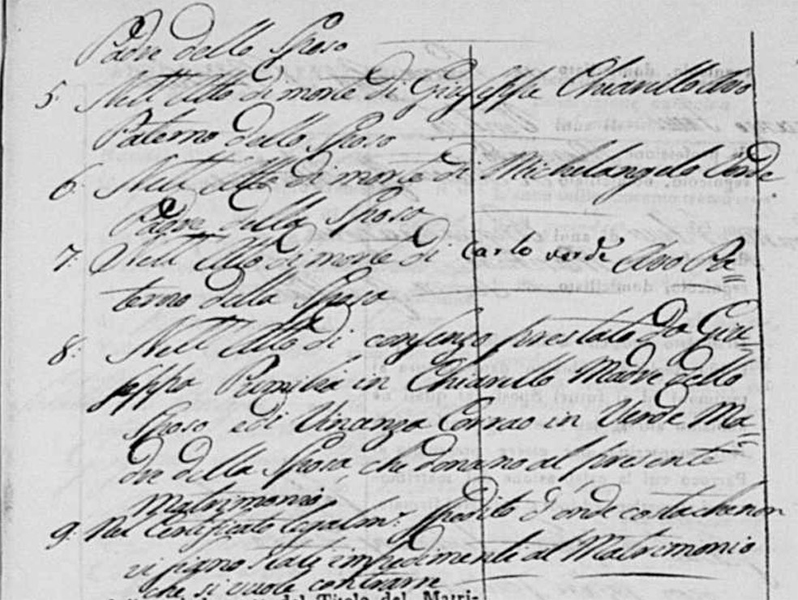 Padre dello Sposo
5. Nell' Atto di morte di Giuseppe Chianello Avo
Paterno dello Sposo
6. Nell' Atto di morte di Michelangelo Verde
Padre della Sposa
7. Nell' Atto di morte di Carlo verde Avo Pa=
terno della Sposa
8. Nell' Atto di consenso prestato da Giu=
seppa in Chianello Madre dello
Sposo e di Vincenza Corrao in Verde Ma=
dre della Sposa, che donano al presente
Matrimonio
9. Nel Certificato legalm: spedito d'onde costa che non
vi siano stati impedimenti al Matrimonio
che si vuole contrarre
del Titolo del Matri-